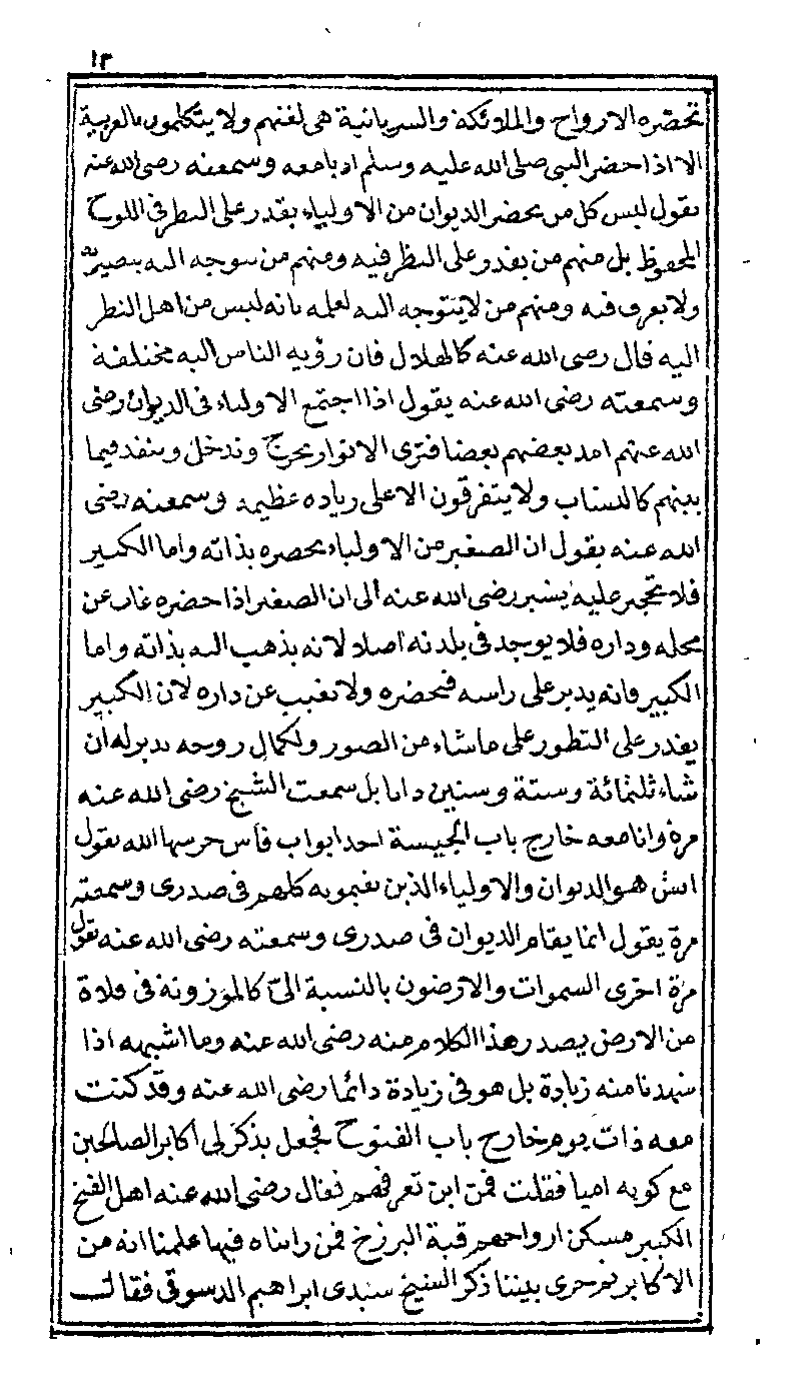 ١٣
تحضره الارواح والملائكة والسريانية هى لغتهم ولا يتكلمون بالعربية
الا اذا حضر النبى صلى الله عليه وسلم ادبا معه وسمعته رضى الله عنه
يقول ليس كل من يحضر الديوان من الاولياء يقدر على النظر فى اللوح
المحفوظ بل منهم من يقدر على النظر فيه ومنهم من يتوجه اليه ببصيرته
ولا يعرف فيه ومنهم من لا يتوجه اليه لعلمه بانه ليس من اهل النظر
اليه قال رضى الله عنه كالهلال فان رؤية الناس اليه مختلفة
وسمعته رضى الله عنه يقول اذا اجتمع الاولياء فى الديوان رضى
الله عنهم امد بعضهم بعضا فترى الانوار تخرج وتدخل وتنفد فيما
بينهم كالنشاب ولا يتفرقون الا على زياده عظيمه وسمعته رضى
الله عنه يقول ان الصغير من الاولياء يحضره بذاته واما الكبير
فلا تحجير عليه يشير رضى الله عنه الى ان الصغير اذا حضره غاب عن
محله وداره فلا يوجد فى بلدته اصلا لانه يذهب اليه بذاته واما
الكبير فانه يدبر على راسه فيحضره ولا يغيب عن داره لان الكبير
يقدر على التطور على ما شاء من الصور ولكمال روحه تدبر له ان
شاء ثلثمائة وستة وستين ذاتا بل سمعت الشيخ رضى الله عنه
مرة وانا معه خارج باب الجيسة احد ابواب فاس حرسها الله يقول
ايش هو الديوان والاولياء الذين يقيمونه كلهم فى صدرى وسمعته
مرة يقول انما يقام الديوان فى صدرى وسمعته رضى الله عنه يقول
مرة اخرى السموات والارضون بالنسبة الىّ كالموزونة فى فلاة
من الارض يصدر هذا الكلام منه رضى الله عنه وما اشبهه اذا
شهدنا منه زيادة بل هو فى زيادة دائما رضى الله عنه وقد كنت
معه ذات يوم خارج باب الفتوح فجعل يذكر لى اكابر الصالحين
مع كونه اميا فقلت فمن اين تعرفهم فقال رضى الله عنه اهل الفتح
الكبير مسكن ارواحهم قبة البرزخ فمن رايناه فيها علمنا انه من
الاكابر ثم جرى بيننا ذكر الشيخ سيدى ابراهيم الدسوقى فقالت